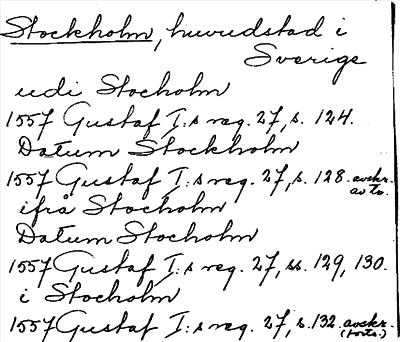 Stockholm, huvudstad i
Sverige
udi Stocholm
1557 Gustaf I:s reg. 27, s. 124.
Datum Stockholm
1557 Gustaf I:s reg. 27, s. 128. avskr.
av to.
ifrå Stocholm
Datum Stocholm
1557 Gustaf I:s reg. 27, ss. 129, 130.
i Stocholm
1557 Gustaf I:s reg. 27, s. 132. avskr.
(forts.)